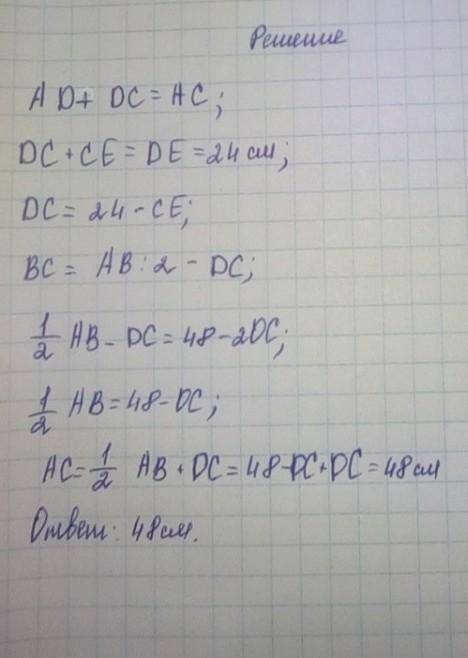 Решение
AD + DC = AC;
DC + CE = DE = 24 см;
DC = 24 - CE;
BC = AB : 2 - DC;
1/2 AB - DC = 48 - 2DC;
1/2 AB = 48 - DC;
AC = 1/2 AB + DC = 48 - DC + DC = 48 см
Ответ: 48 см.